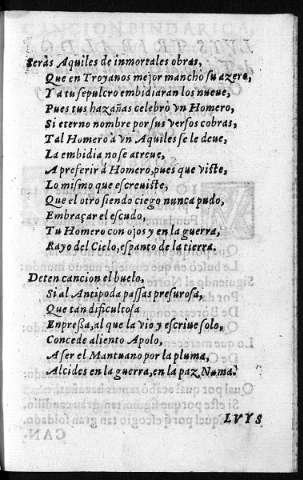 Seràs Aquiles de inmortales obras,
Que en Troyanos mejor manchò su azero,
Y a tu sepulcro embidiaran los nueue,
Pues tus hazañas celebrò vn Homero,
Si eterno nombre por sus versos cobras,
Tal Homero à vn Aquiles se le deue,
La embidia no se atreue,
A preferir â Homero, pues que viste,
Lo mismo que escreuiste,
Que el otro siendo ciego nunca pudo,
Embraçar el escudo,
Tu Homero con ojos y en la guerra,
Rayo del Cielo, espanto de la tierra.
Deten cancion el buelo,
Si al Antipoda passas presurosa,
Que tan dificultosa
Enpresſa, al que la vio y escriue solo,
Concede aliento Apolo,
A ser el Mantuano por la pluma,
Alcides en la guerra, en la paz Numa.
LVYS